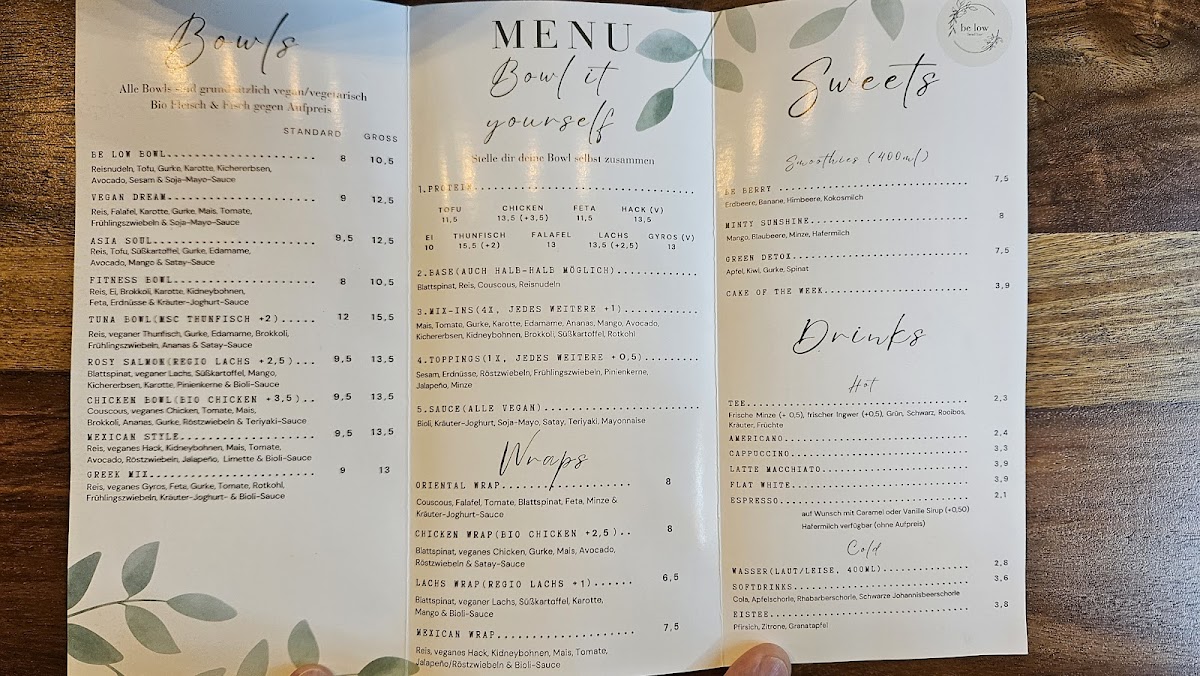 Bowls
Alle Bowls sind grundsätzlich vegan/vegetarisch
Bio Fleisch & Fisch gegen Aufpreis
STANDARD GROSS
BE LOW BOWL 8 10,5
Reisnudeln, Tofu, Gurke, Karotte, Kichererbsen,
Avocado, Sesam & Soja-Mayo-Sauce
VEGAN DREAM 9 12,5
Reis, Falafel, Karotte, Gurke, Mais, Tomate,
Frühlingszwiebeln & Soja-Mayo-Sauce
ASIA SOUL 9,5 12,5
Reis, Tofu, Süßkartoffel, Gurke, Edamame,
Avocado, Mango & Satay-Sauce
FITNESS BOWL 8 10,5
Reis, Ei, Brokkoli, Karotte, Kidneybohnen,
Feta, Erdnüsse & Kräuter-Joghurt-Sauce
TUNA BOWL(MSC THUNFISCH +2) 12 15,5
Reis, veganer Thunfisch, Gurke, Edamame, Brokkoli,
Frühlingszwiebeln, Ananas & Satay-Sauce
ROSY SALMON(REGIO LACHS +2,5) 9,5 13,5
Blattspinat, veganer Lachs, Süßkartoffel, Mango,
Kichererbsen, Karotte, Pinienkerne & Bioli-Sauce
CHICKEN BOWL(BIO CHICKEN +3,5) 9,5 13,5
Couscous, veganes Chicken, Tomate, Mais,
Brokkoli, Ananas, Gurke, Röstzwiebeln & Teriyaki-Sauce
MEXICAN STYLE 9,5 13,5
Reis, veganes Hack, Kidneybohnen, Mais, Tomate,
Avocado, Röstzwiebeln, Jalapeño, Limette & Bioli-Sauce
GREEK MIX 9 13
Reis, veganes Gyros, Feta, Gurke, Tomate, Rotkohl,
Frühlingszwiebeln, Kräuter-Joghurt- & Bioli-Sauce
MENU
Bowl it
yourself
Stelle dir deine Bowl selbst zusammen
1.PROTEIN
TOFU CHICKEN FETA HACK (V)
11,5 13,5 (+3,5) 11,5 13,5
EI THUNFISCH FALAFEL LACHS GYROS (V)
10 15,5 (+2) 13 13,5 (+2,5) 13
2.BASE(AUCH HALB-HALB MÖGLICH)
Blattspinat, Reis, Couscous, Reisnudeln
3.MIX-INS(4X, JEDES WEITERE +1)
Mais, Tomate, Gurke, Karotte, Edamame, Ananas, Mango, Avocado,
Kichererbsen, Kidneybohnen, Brokkoli, Süßkartoffel, Rotkohl
4.TOPPINGS(1X, JEDES WEITERE +0,5)
Sesam, Erdnüsse, Röstzwiebeln, Frühlingszwiebeln, Pinienkerne,
Jalapeño, Minze
5.SAUCE(ALLE VEGAN)
Bioli, Kräuter-Joghurt, Soja-Mayo, Satay, Teriyaki, Mayonnaise
Wraps
ORIENTAL WRAP 8
Couscous, Falafel, Tomate, Blattspinat, Feta, Minze &
Kräuter-Joghurt-Sauce
CHICKEN WRAP(BIO CHICKEN +2,5) 8
Blattspinat, veganes Chicken, Gurke, Mais, Avocado,
Röstzwiebeln & Satay-Sauce
LACHS WRAP(REGIO LACHS +1) 6,5
Blattspinat, veganer Lachs, Süßkartoffel, Karotte,
Mango & Bioli-Sauce
MEXICAN WRAP 7,5
Reis, veganes Hack, Kidneybohnen, Mais, Tomate,
Jalapeño/Röstzwiebeln & Bioli-Sauce
be low
Sweets
Smoothies (400ml)
BE BERRY 7,5
Erdbeere, Banane, Himbeere, Kokosmilch
MINTY SUNSHINE 8
Mango, Blaubeere, Minze, Hafermilch
GREEN DETOX 7,5
Apfel, Kiwi, Gurke, Spinat
CAKE OF THE WEEK 3,9
Drinks
Hot
TEE 2,3
Frische Minze (+ 0,5), frischer Ingwer (+0,5), Grün, Schwarz, Rooibos,
Kräuter, Früchte
AMERICANO 2,4
CAPPUCCINO 3,3
LATTE MACCHIATO 3,9
FLAT WHITE 3,9
ESPRESSO 2,1
auf Wunsch mit Caramel oder Vanille Sirup (+0,50)
Hafermilch verfügbar (ohne Aufpreis)
Cold
WASSER(LAUT/LEISE, 400ML) 2,8
SOFTDRINKS 3,6
Cola, Apfelschorle, Rhabarberschorle, Schwarze Johannisbeerschorle
EISTEE 3,8
Pfirsich, Zitrone, Granatapfel